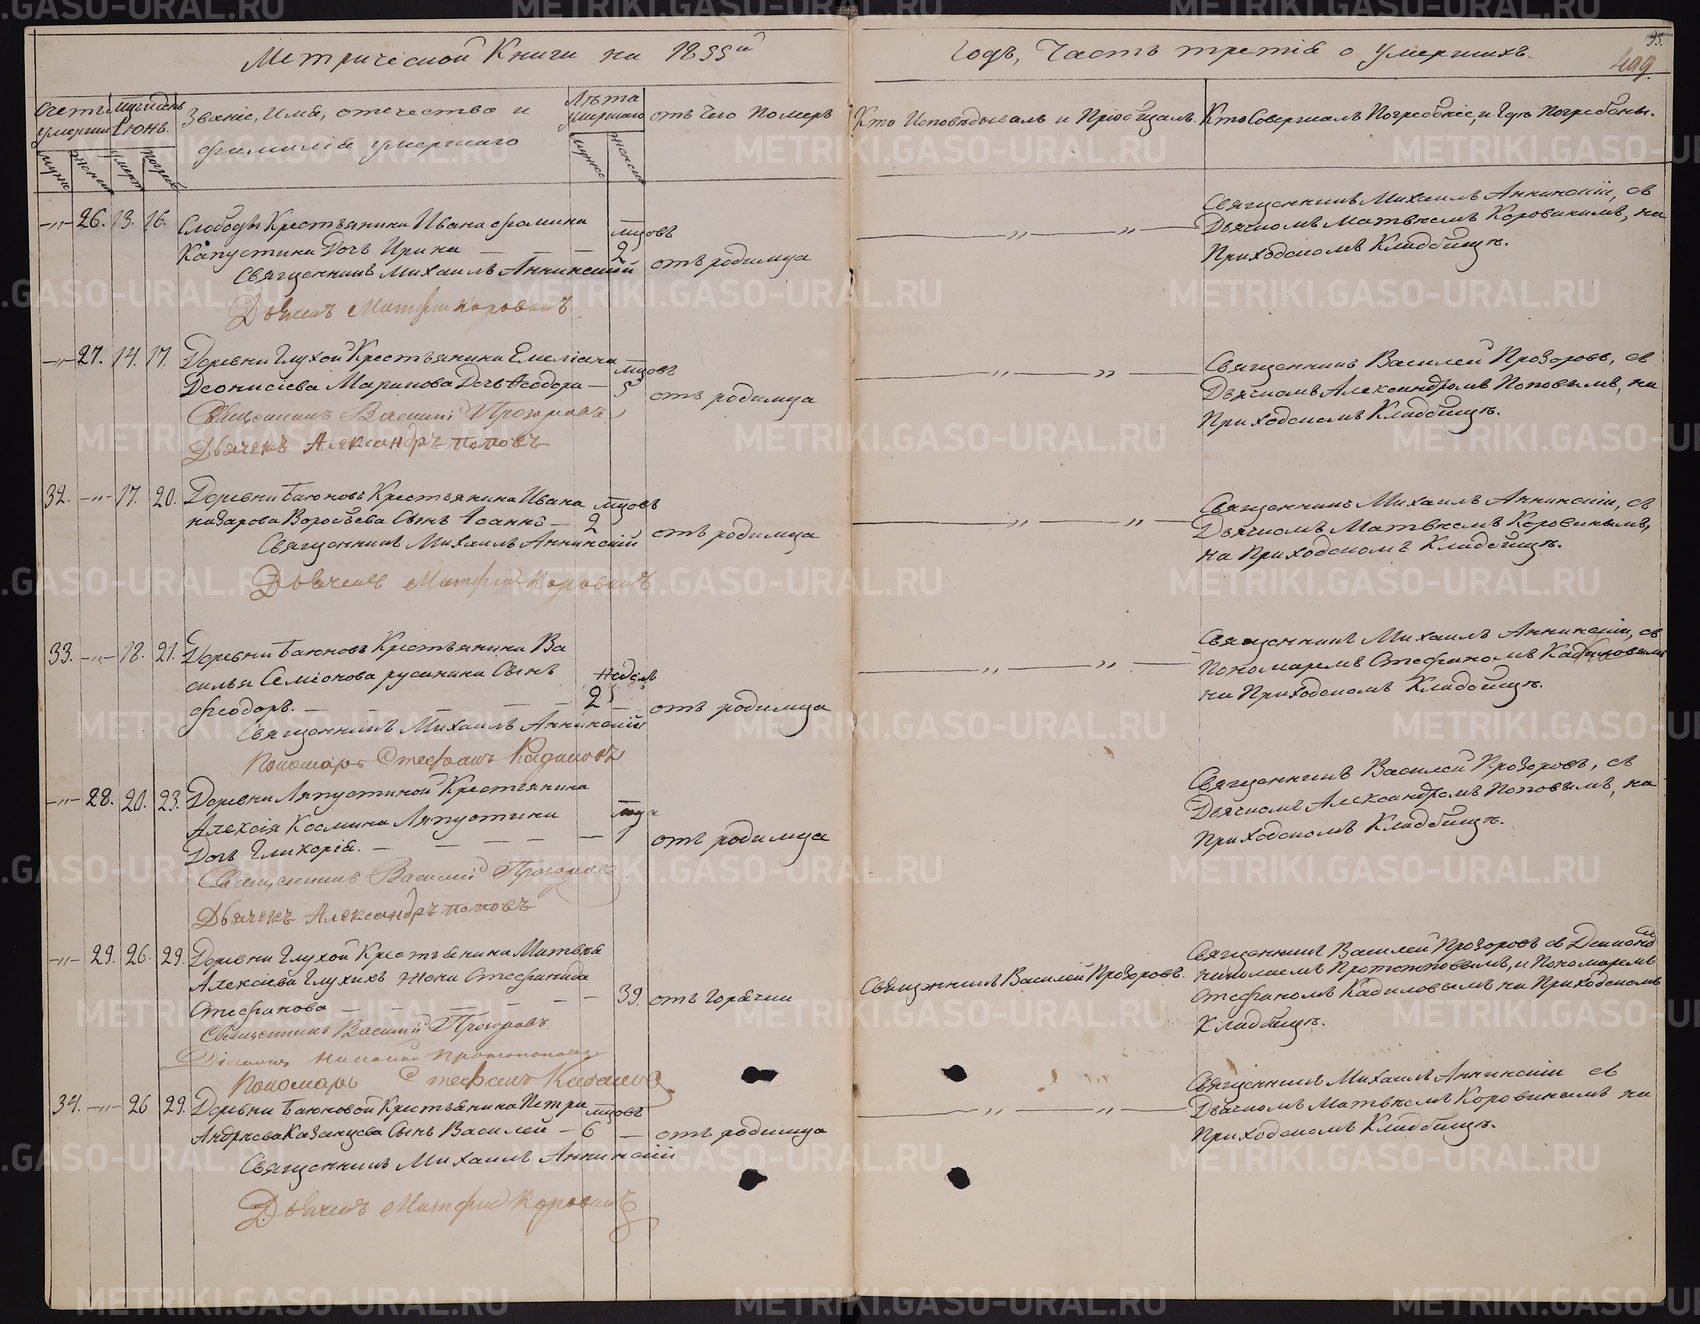 Метрической Книги на 1855й
Годъ, Часть третія о умершихъ.
95.
499
Счетъ умершихъ
Мцъ и день
Іюнь.
Званіе, Имя, отечество и
фамилія умершаго
Лѣта умершаго
отъ чего померъ
Кто Исповѣдывалъ и Пріобщалъ.
Кто Совершалъ Погребеніе, и Гдѣ Погребены.
муж
женск
умерт
погреб
мужс
женск
—„— 26. 13. 16.
Слободы Крестьянина Ивана Фомина
Капустина Дочь Ирина — — —
мцовъ
2
отъ родимца
— „ — „ —
Священникъ Михаилъ Аннинскій, съ
Дьячкомъ Матвѣемъ Коровинымъ, на
Приходскомъ Кладбищѣ.
Священникъ Михаилъ Аннинскій
Дьячекъ Матфей Коровинъ
—„— 27. 14. 17.
Деревни Глухой Крестьянина Емеліана
Деонисіева Маринова Дочь Ѳеодора —
мцовъ
5
отъ родимца
— „ — „ —
Священникъ Василей Прозоровъ, съ
Дьячкомъ Александромъ Поповымъ, на
Приходскомъ Кладбищѣ.
Священникъ Василій Прозоровъ
Дьячекъ Александръ Поповъ
32. —„— 17. 20.
Деревни Баюновъ Крестьянина Ивана
Назарова Воробьева Сынъ Іоаннъ —
мцовъ
2
отъ родимца
— „ — „ —
Священникъ Михаилъ Аннинскій, съ
Дьячкомъ Матвѣемъ Коровинымъ,
на Приходскомъ Кладбищѣ.
Священникъ Михаилъ Аннинскій
Дьячекъ Матфей Коровинъ
33. —„— 18. 21.
Деревни Баюновъ Крестьянина Ва
силья Семіонова русанина Сынъ
Феодоръ. — — — —
недель
2
отъ родимца
— „ — „ —
Священникъ Михаилъ Аннинскій, съ
Пономаремъ Стефаномъ Кадиловымъ
на Приходскомъ Кладбищѣ.
Священникъ Михаилъ Аннинскій
Пономарь Стефанъ Кадиловъ
—„— 28. 20. 23.
Деревни Ляпустиной Крестьянина
Алексія Косьмина Ляпустина
Дочь Гликерія. — — — — —
1
отъ родимца
Священникъ Василей Прозоровъ, съ
Дьячкомъ Александромъ Поповымъ, на
Приходскомъ Кладбищѣ.
Священникъ Василій Прозоровъ
Дьячекъ Александръ Поповъ
—„— 29. 26. 29.
Деревни Глухой Крестьянина Матвѣя
Алексіева Глухихъ Жена Стефанида
Стефанова — — — — —
39.
отъ Горячки
Священникъ Василей Прозоровъ.
Священникъ Василей Прозоровъ съ Діакономъ
Николаемъ Протопоповымъ, и Пономаремъ
Стефаномъ Кадиловымъ на Приходскомъ
Кладбищѣ.
Священникъ Василій Прозоровъ
Діаконъ Николай Протопоповъ
Пономарь Стефанъ Кадиловъ
34. —„— 26 29.
Деревни Баюновой Крестьянина Петра
Андреева Казанцева Сынъ Василей —
мцовъ
6 —
отъ родимца
— „ — „ —
Священникъ Михаилъ Аннинскій съ
Дьячкомъ Матвѣемъ Коровинымъ на
Приходскомъ Кладбищѣ.
Священникъ Михаилъ Аннинскій
Дьячекъ Матфей Коровинъ
METRIKI.GASO-URAL.RU